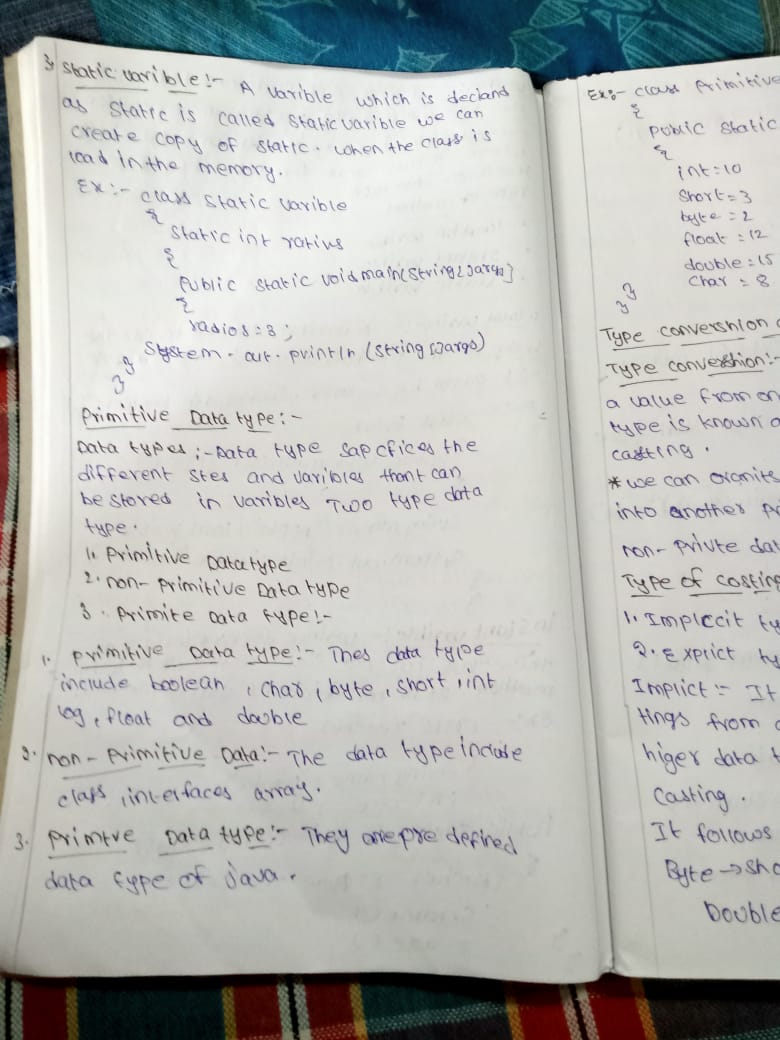 3, Static varible:- A varible which is decland
as static is called static varible we can
create copy of static. when the class is
load in the memory.
Ex:- class static varible
{
static int ratius
{
Public static void main(string[]args]
{
radios=3;
System-out.println (string []args)
}
}
Primitive Data type:-
Data types:-Data type sapcfices the
different stes and varibles thant can
be stored in varibles Two type data
type.
1. Primitive Data type
2. non-primitive Data type
3. Primite Data type:-
1. Primitive Data type:- Thes data type
include boolean, char, byte, short, int
log, float and double
2. non-Primitive Data:- The data type include
class, interfaces array.
3. Primtve Data type:- They are pre defined
data type of java.
Ex:- class Primitive
{
public static
{
int=10
short=3
byte=2
float=12
double=15
char=8
}
}
Type convershion
Type convershion:-
a value from on
type is known
castting.
*we can
into another Pr
non-privte dat
Type of costing
1. Implecit ty
2. Explict ty
Implict:- It
tings from
higer data t
Casting.
It follows
Byte→sho
Double